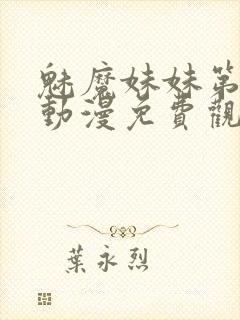 魅魔妹妹第
動漫免費觀
葉永烈